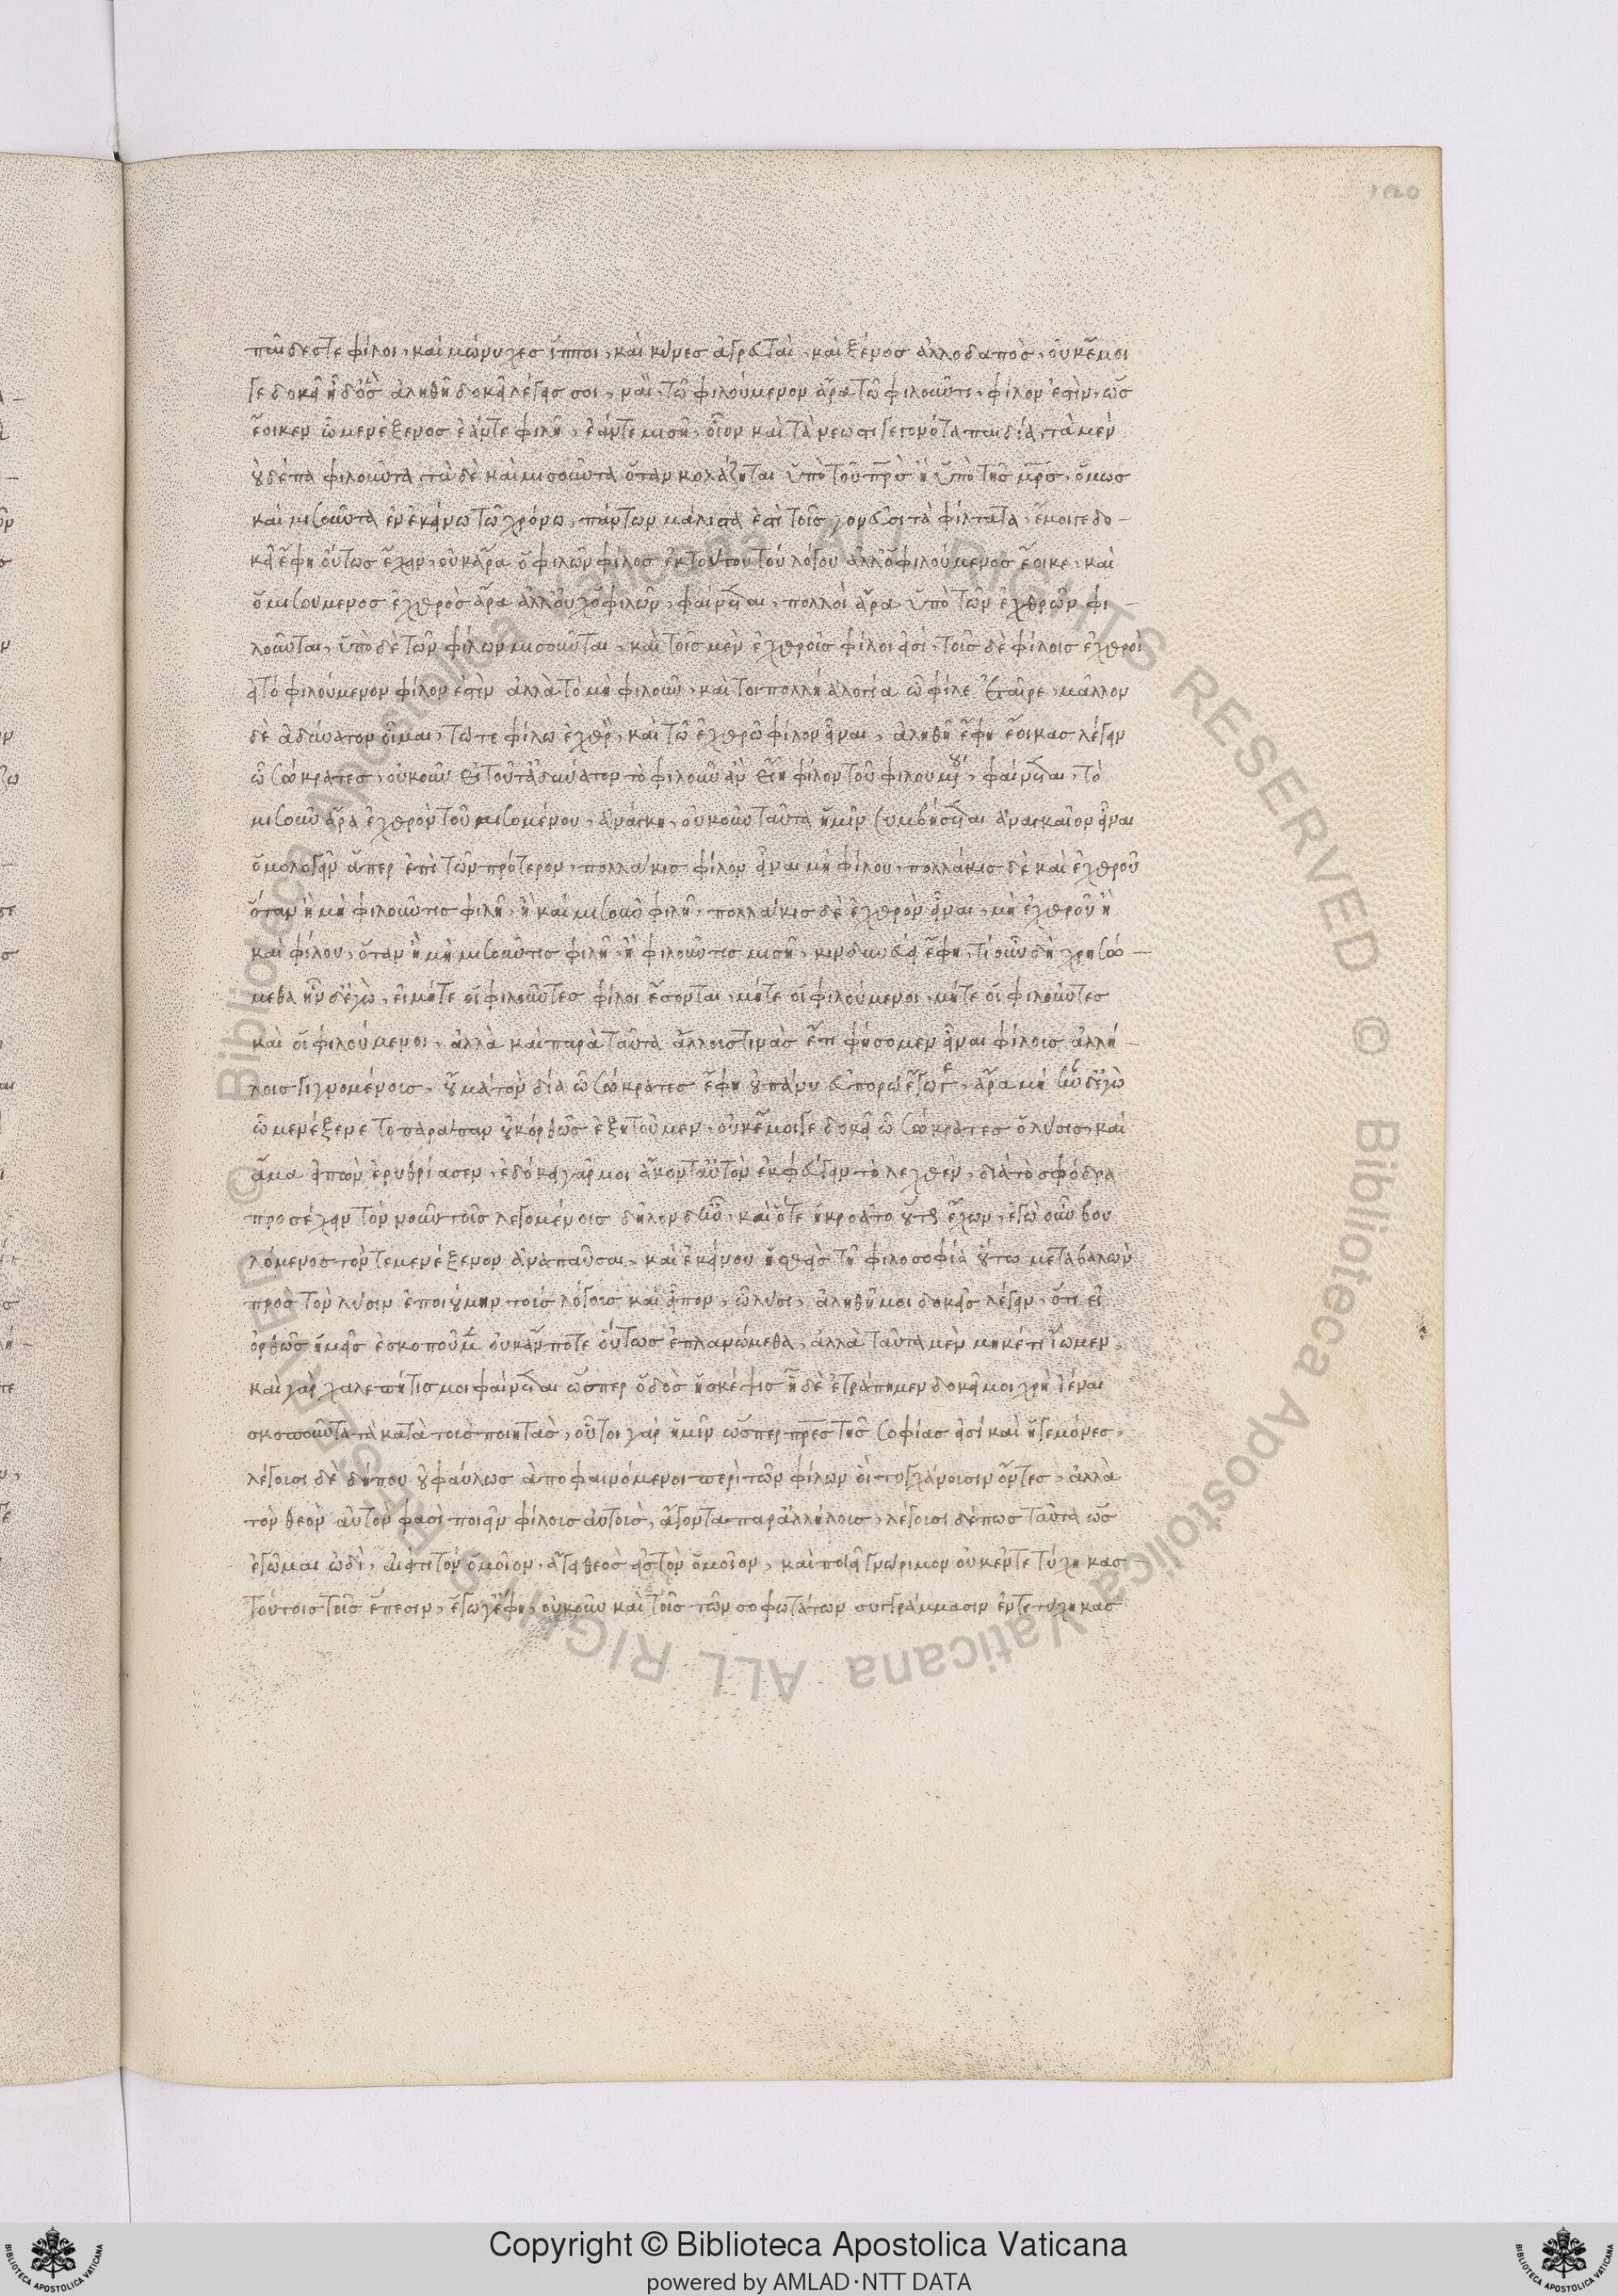 100
παῖδές τε φίλοι, καὶ μώνυχες ἵπποι, καὶ κύνες ἀγρευταὶ, καὶ ξένος ἀλλοδαπὸς, οὐκ ἔμοι
γε δοκεῖ ἦ δ' ὃς ἀληθῆ δοκεῖ λέγειν σοι, ναὶ, τὸ φιλούμενον ἄρα τῶ φιλοῦντι, φίλον ἐστὶν, ὡς
ἔοικεν ὦ μενέξενος ἐάν τε φιλῆ, ἐάν τε μισῆ, οἷον καὶ τὰ νεωστὶ γεγονότα παιδία, τὰ μὲν
οὐδέπω φιλοῦντα, τὰ δὲ καὶ μισοῦντα ὅταν κολάζηται ὑπὸ τοῦ πρσ ἢ ὑπὸ τῆς μρσ, ὅμως
καὶ μισοῦντα ἐν ἐκείνω τῶ χρόνω, πάντων μάλιστά ἐστι τοῖς γονεῦσι τὰ φίλτατα, ἔμοιγε δο-
κεῖ ἔφη οὕτως ἔχειν, οὐκ ἄρα ὁ φιλῶν φίλος ἐκ τούτου τοῦ λόγου ἀλλ' ὁ φιλούμενος ἔοικε, καὶ
ὁ μισούμενος ἐχθρὸς ἄρα ἀλλ' οὐχ ὁ φιλῶν, φαίνεται, πολλοὶ ἄρα ὑπὸ τῶν ἐχθρῶν φι-
λοῦνται, ὑπὸ δὲ τῶν φίλων μισοῦνται, καὶ τοῖς μὲν ἐχθροῖς φίλοι εἰσὶ, τοῖς δὲ φίλοις ἐχθροὶ
εἰ τὸ φιλούμενον φίλον ἐστὶν ἀλλὰ τὸ μὴ φιλοῦν, καί τοι πολλὴ ἀλογία ὦ φίλε ἑταῖρε, μᾶλλον
δὲ ἀδύνατον οἶμαι, τῶ τε φίλω ἐχθρὸν, καὶ τῶ ἐχθρῶ φίλον εἶναι, ἀληθῆ ἔφη ἔοικας λέγειν
ὦ σώκρατες, οὐκοῦν εἰ τοῦτ' ἀδύνατον τὸ φιλοῦν ἂν εἴη φίλον τοῦ φιλουμένου, φαίνεται, τὸ
μισοῦν ἄρα ἐχθρὸν τοῦ μισομένου, ἀνάγκη, οὐκοῦν ταῦτα ἡμῖν συμβήσεται ἀναγκαῖον εἶναι
ὁμολογεῖν ἅπερ ἐπὶ τῶν πρότερον, πολλάκις φίλον εἶναι μὴ φίλου, πολλάκις δὲ καὶ ἐχθροῦ
ὅταν ἢ μὴ φιλοῦν τις φιλῆ, ἢ καὶ μισοῦν φιλῆ, πολλάκις δὲ ἐχθρὸν εἶναι, μὴ ἐχθροῦ ἢ
καὶ φίλου, ὅταν ἢ μὴ μισοῦν τις φιλῆ, ἢ φιλοῦν τις μισῆ, κινδυνεύει ἔφη, τί οὖν δὴ χρησώ-
μεθα ἦν δ' ἐγὼ, εἰ μήτε οἱ φιλοῦντες φίλοι ἔσονται, μήτε οἱ φιλούμενοι, μήτε οἱ φιλοῦντες
καὶ οἱ φιλούμενοι, ἀλλὰ καὶ παρὰ ταῦτα ἄλλους τινὰς ἔτι φήσομεν εἶναι φίλους ἀλλή-
λοις γιγνομένους, οὐ μὰ τὸν δία ὦ σώκρατες ἔφη οὐ πάνυ εὐπορῶ ἔγωγε, ἆρα μὴ ἦν δ' ἐγὼ
ὦ μενέξενε τὸ παράπαν οὐκ ὀρθῶς ἐζητοῦμεν, οὐκ ἔμοιγε δοκεῖ ὦ σώκρατες ὁ λύσις, καὶ
ἅμα εἰπὼν ἐρυθρίασεν, ἐδόκει γάρ μοι ἄκοντ' αὐτὸν ἐκφεύγειν τὸ λεχθὲν, διὰ τὸ σφόδρα
προσέχειν τὸν νοῦν τοῖς λεγομένοις δῆλον δ' ἦν, καὶ ὅτε ἠκροᾶτο οὕτως ἔχων, ἐγὼ οὖν βου
λόμενος τόν τε μενέξενον ἀναπαῦσαι, καὶ ἐκείνου ἡσθεὶς τῆ φιλοσοφία οὕτω μεταβαλὼν
πρὸς τὸν λύσιν ἐποιούμην τοὺς λόγους καὶ εἶπον, ὦ λύσι, ἀληθῆ μοι δοκεῖς λέγειν, ὅτι εἰ
ὀρθῶς ἡμεῖς ἐσκοποῦμεν οὐκ ἄν ποτε οὕτως ἐπλανώμεθα, ἀλλὰ ταῦτα μὲν μηκέτι ἴωμεν,
καὶ γὰρ χαλεπή τίς μοι φαίνεται ὥσπερ ὁδὸς ἡ σκέψις ἧ δὲ ἐτράπημεν δοκεῖ μοι χρὴ ἰέναι
σκοποῦντα τὰ κατὰ τοὺς ποιητὰς, οὗτοι γὰρ ἡμῖν ὥσπερ πρεσ τῆς σοφίας εἰσὶ καὶ ἡγεμόνες,
λέγουσι δὲ δήπου οὐ φαύλως ἀποφαινόμενοι περὶ τῶν φίλων οἳ τυγχάνουσιν ὄντες, ἀλλὰ
τὸν θεὸν αὐτόν φασὶ ποιεῖν φίλους αὐτοὺς, ἄγοντα παρ' ἀλλήλους, λέγουσι δέ πως ταῦτα ὡς
ἐγῶμαι ὡδὶ, αἰεί τι τὸν ὅμοιον, ἄγει θεὸς εἰς τὸν ὅμοιον, καὶ ποιεῖ γνώριμον οὐκ ἐντετύχηκας
τούτοις τοῖς ἔπεσιν, ἔγωγ' ἔφη, οὐκοῦν καὶ τοῖς τῶν σοφωτάτων συγγράμμασιν ἐντετύχηκας
© Biblioteca Apostolica Vaticana ALL RIGHTS RESERVED © Biblioteca Apostolica Vaticana ALL RIGHTS RESERVED
Copyright © Biblioteca Apostolica Vaticana
powered by AMLAD·NTT DATA
BIBLIOTECA APOSTOLICA VATICANA
BIBLIOTECA APOSTOLICA VATICANA